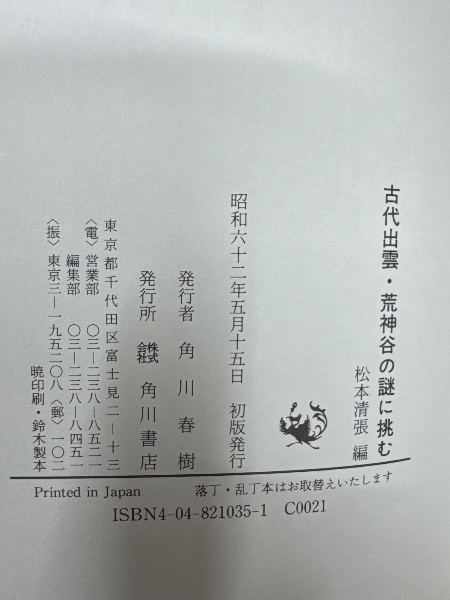 古代出雲・荒神谷の謎に挑む
松本清張 編
昭和六十二年五月十五日 初版発行
発行者 角川春樹
発行所 株式会社 角川書店
東京都千代田区富士見二―十三
〈電〉営業部 〇三―二三八―八五二一
編集部 〇三―二三八―八四五一
〈振〉東京三―一九五二〇八〈郵〉一〇二
暁印刷・鈴木製本
Printed in Japan 落丁・乱丁本はお取替えいたします
ISBN4-04-821035-1 C0021